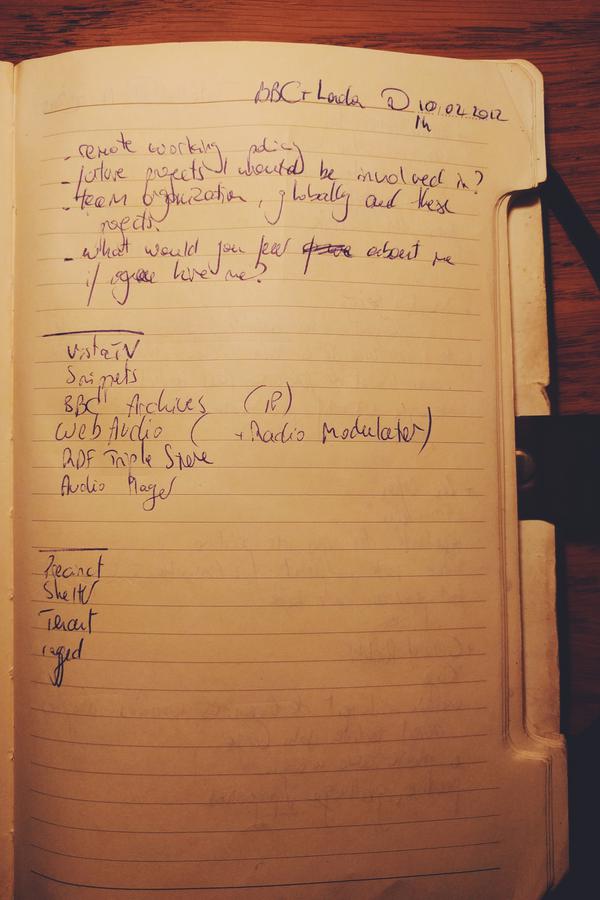 BBC + London @ 10.02.2012
1h
- remote working policy
- future projects I would be involved in?
- team organization, globally and these
projects.
- what would you fear about me
if you hire me?
VistaTV
Snippets
BBC Archives (IP)
WebAudio ( +Radio Modulator)
RDF Triple Store
Audio Player
Precinct
Shelter
Tenant
ragged